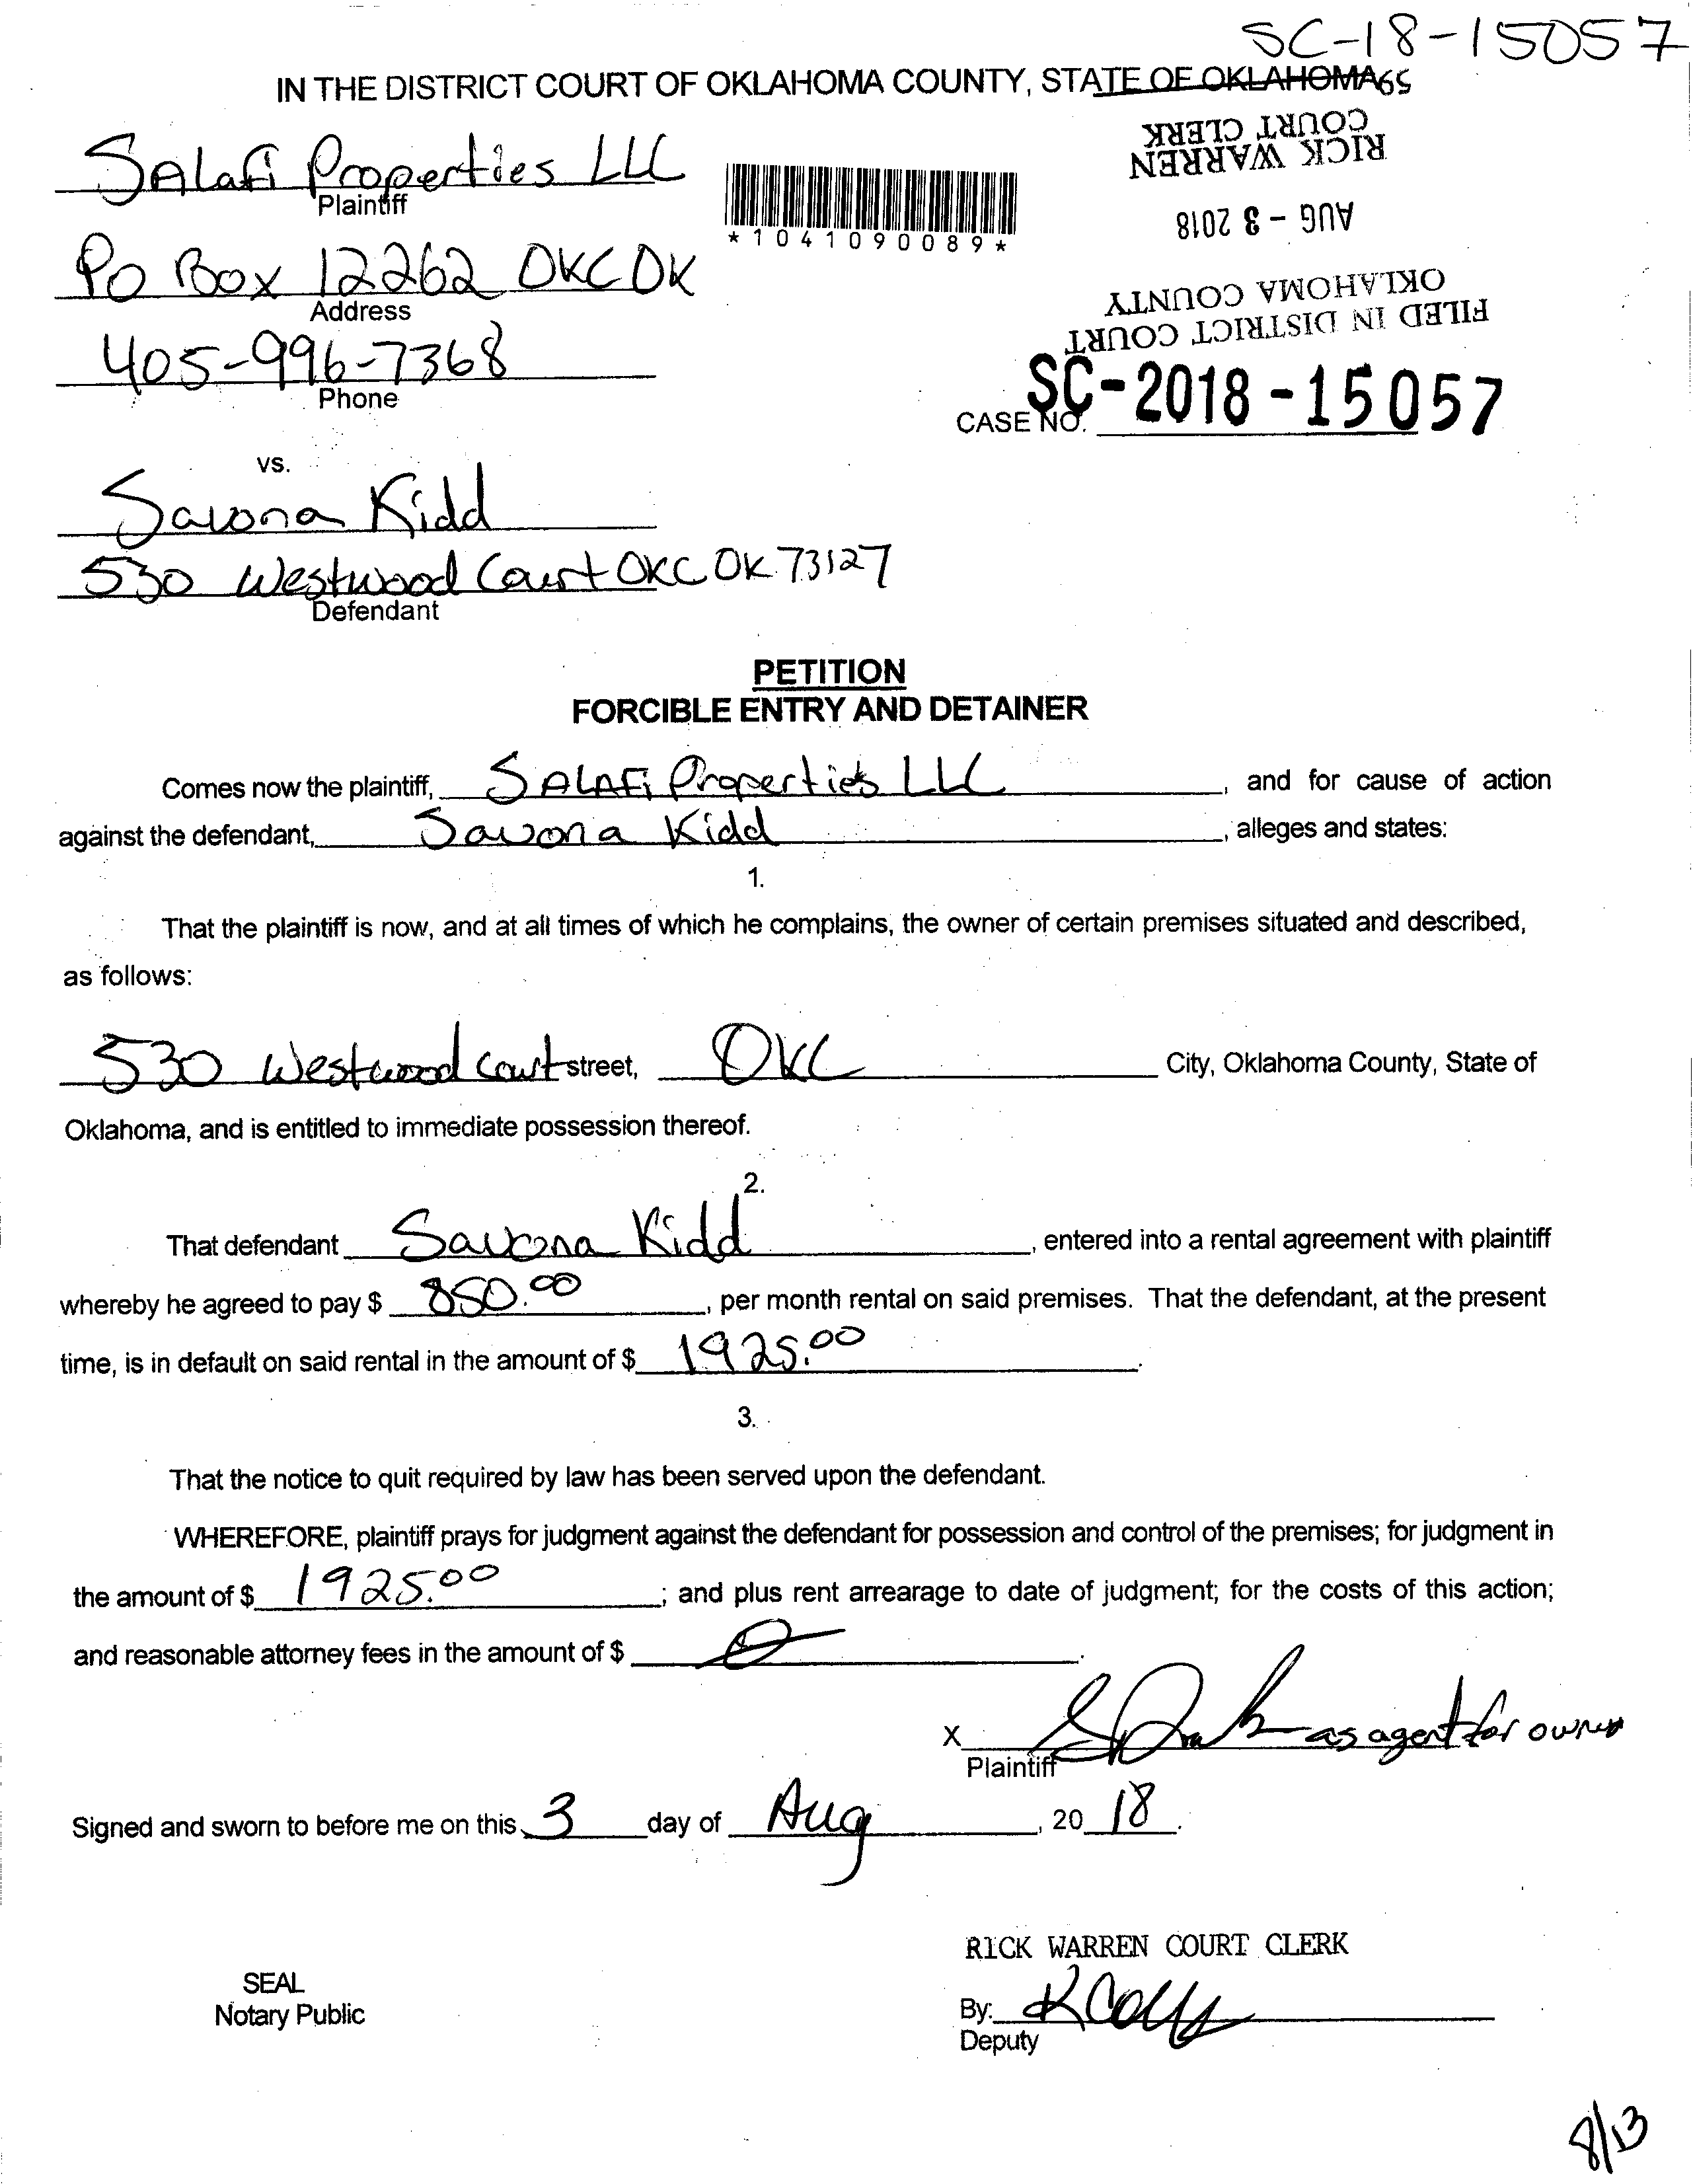 SC-18-15057
IN THE DISTRICT COURT OF OKLAHOMA COUNTY, STATE OF OKLAHOMA
59
RICK WARREN
COURT CLERK
SALafi Properties LLC
Plaintiff
*1041090089*
AUG - 3 2018
PO Box 12262 OKC OK
Address
FILED IN DISTRICT COURT
OKLAHOMA COUNTY
405-996-7368
Phone
CASE NO. SC-2018-15057
vs.
Savona Kidd
530 Westwood Court OKC OK 73127
Defendant
PETITION
FORCIBLE ENTRY AND DETAINER
Comes now the plaintiff, SALAFi Properties LLC, and for cause of action
against the defendant, Savona Kidd, alleges and states:
1.
That the plaintiff is now, and at all times of which he complains, the owner of certain premises situated and described,
as follows:
530 Westwood Court street, OKC City, Oklahoma County, State of
Oklahoma, and is entitled to immediate possession thereof.
2.
That defendant Savona Kidd, entered into a rental agreement with plaintiff
whereby he agreed to pay $ 850.00, per month rental on said premises. That the defendant, at the present
time, is in default on said rental in the amount of $ 1925.00.
3.
That the notice to quit required by law has been served upon the defendant.
WHEREFORE, plaintiff prays for judgment against the defendant for possession and control of the premises; for judgment in
the amount of $ 1925.00; and plus rent arrearage to date of judgment; for the costs of this action;
and reasonable attorney fees in the amount of $ 0.
X as agent for owner
Plaintiff
Signed and sworn to before me on this 3 day of Aug, 20 18.
RICK WARREN COURT CLERK
SEAL
Notary Public
By:
Deputy
8/13